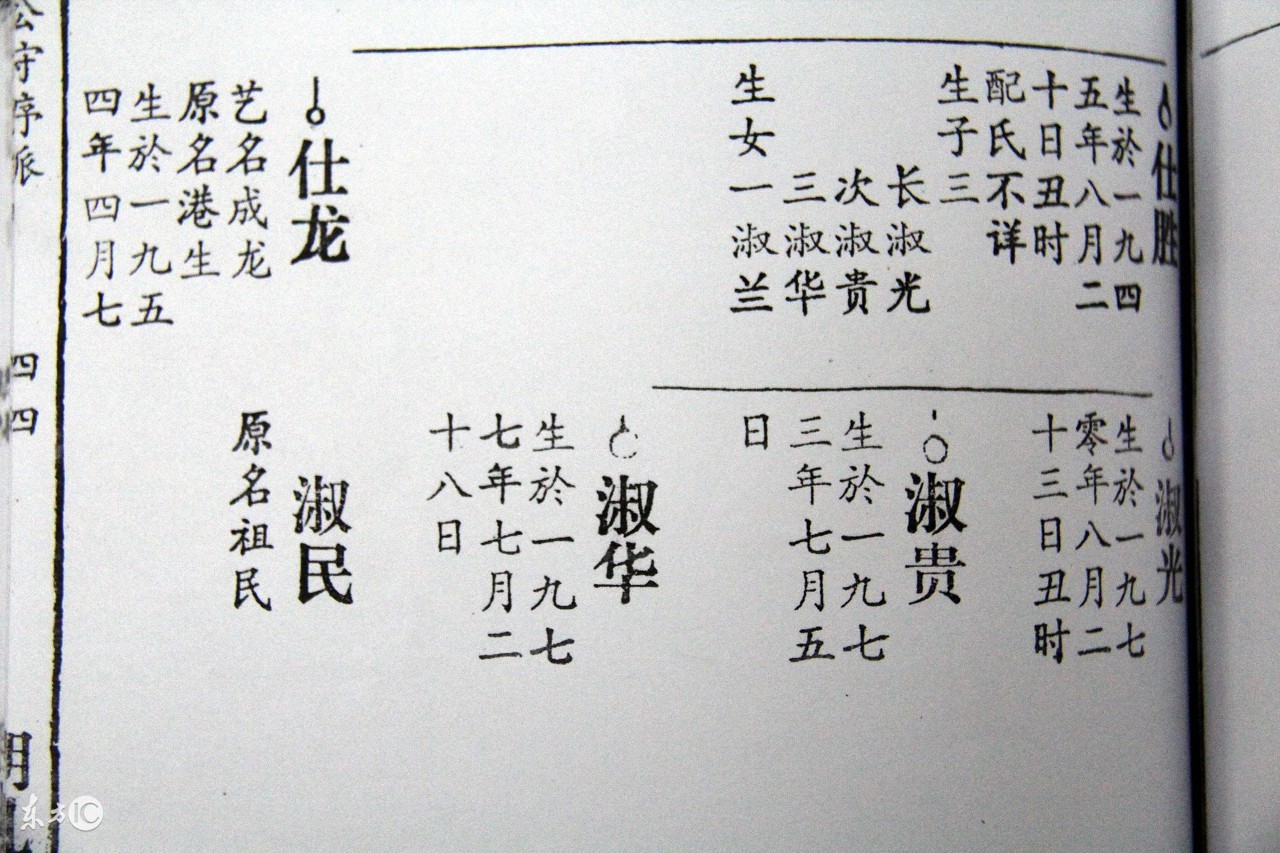 仕胜
生於一九四
五年八月二
十日丑时
配氏不详
生子三
长淑光
次淑贵
三淑华
生女一淑兰
仕龙
艺名成龙
原名港生
生於一九五
四年四月七
淑光
生於一九七
零年八月二
十三日丑时
淑贵
生於一九七
三年七月五
日
淑华
生於一九七
七年七月二
十八日
淑民
原名祖民
公守序派
四四
东方IC